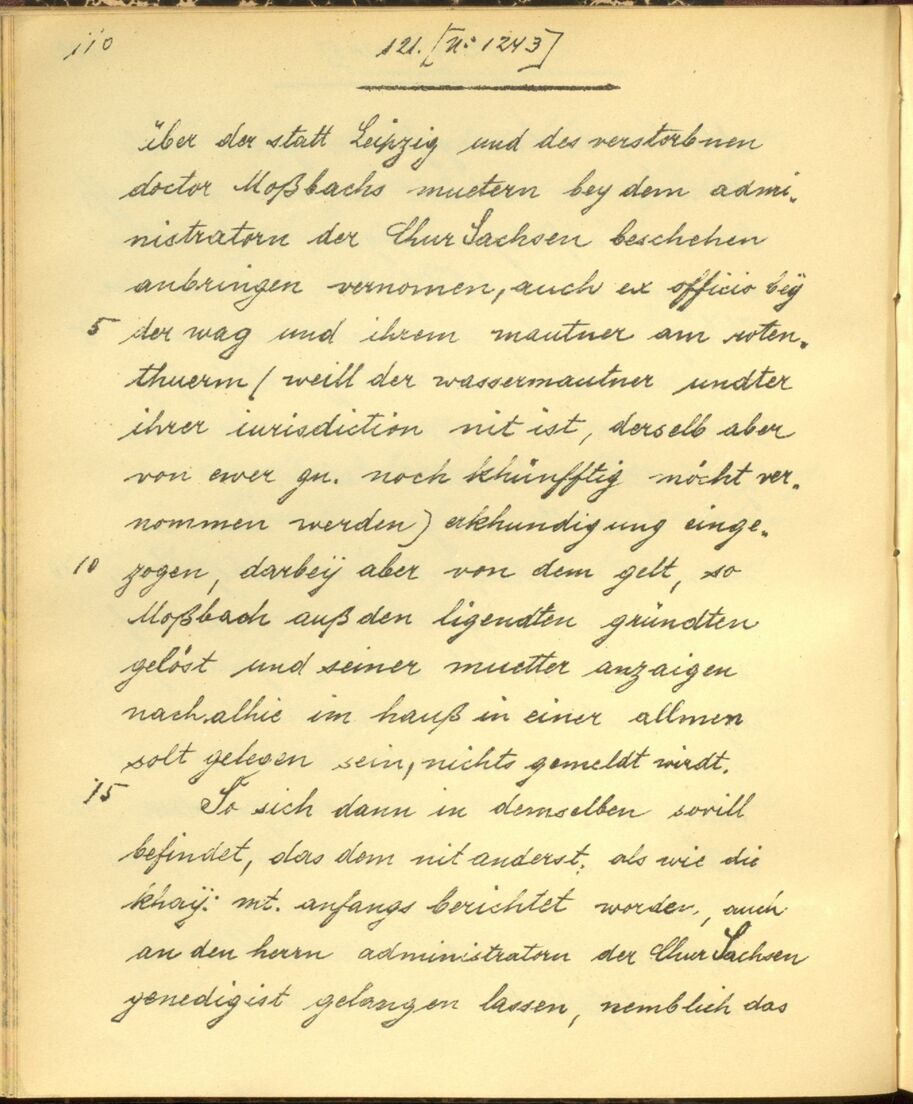 110
121. [N: 1243]
über der statt Leipzig und des verstorbnen
doctor Moßbachs muetern bey dem admi-
nistratorn der Chur Sachsen beschehen
anbringen vernomen, auch ex officio beÿ
5 der wag und ihrem mautner am roten-
thuerm (weill der wassermautner undter
ihrer iurisdiction nit ist, derselb aber
von ewer gn. noch khünfftig möcht ver-
nommen werden) erkhundigung einge-
10 zogen, darbeÿ aber von dem gelt, so
Moßbach auß den ligendten gründten
gelöst und seiner muetter anzaigen
nach alhie im hauß in einer allmen
solt gelegen sein, nichts gemeldt wirdt.
15 So sich dann in demselben sovill
befindet, das dem nit anderst, als wie die
khaÿ: mt. anfangs berichtet worden, auch
an den herrn administratorn der Chur Sachsen
genedigist gelangen lassen, nemblich das